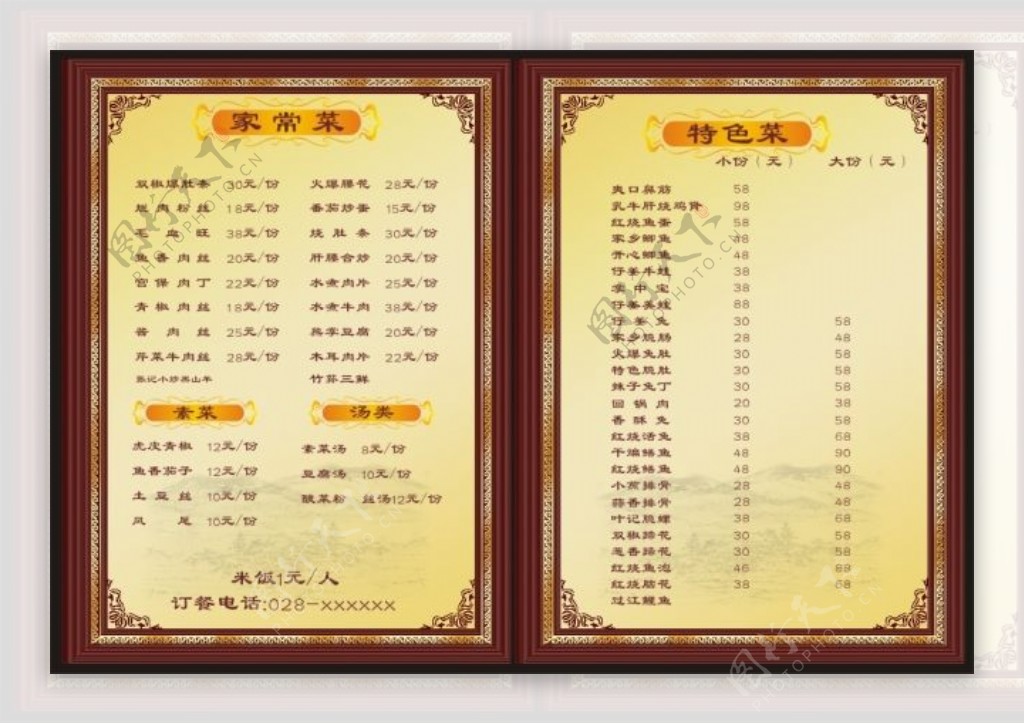 家常菜
双椒爆肚条 30元/份 火爆腰花 28元/份
肉粉丝 18元/份 番茄炒蛋 15元/份
毛血旺 38元/份 烧肚条 30元/份
鱼香肉丝 20元/份 肝腰合炒 20元/份
宫保肉丁 22元/份 水煮肉片 25元/份
青椒肉丝 18元/份 水煮牛肉 38元/份
酱肉丝 25元/份 熊掌豆腐 20元/份
芹菜牛肉丝 28元/份 木耳肉片 22元/份
张记小炒黑山羊 竹荪三鲜
素菜 汤类
虎皮青椒 12元/份 素菜汤 8元/份
鱼香茄子 12元/份 豆腐汤 10元/份
土豆丝 10元/份 酸菜粉 丝汤12元/份
凤尾 10元/份
米饭1元/人
订餐电话:028-xxxxxx
特色菜
小份(元) 大份(元)
爽口鼻筋 58
乳牛肝烧鸡骨 98
红烧鱼蛋 58
家乡鲫鱼 48
开心鲫鱼 48
仔姜牛蛙 38
掌中宝 38
仔姜美蛙 88
仔姜兔 30 58
家乡脆肠 28 48
火爆兔肚 30 58
特色脆肚 30 58
辣子兔丁 30 58
回锅肉 20 38
香酥兔 30 58
红烧活兔 38 68
干煸鳝鱼 48 90
红烧鳝鱼 48 90
小煎排骨 28 48
蒜香排骨 28 48
叶记脆螺 38 68
双椒蹄花 30 58
葱香蹄花 30 58
红烧鱼泡 46 88
红烧脑花 38 68
过江鲤鱼